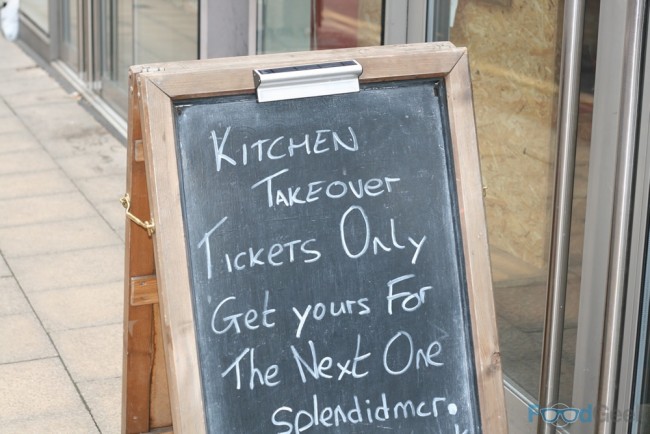 Kitchen
Takeover
Tickets Only
Get yours For
The Next One
splendidmcr.
Food Geek